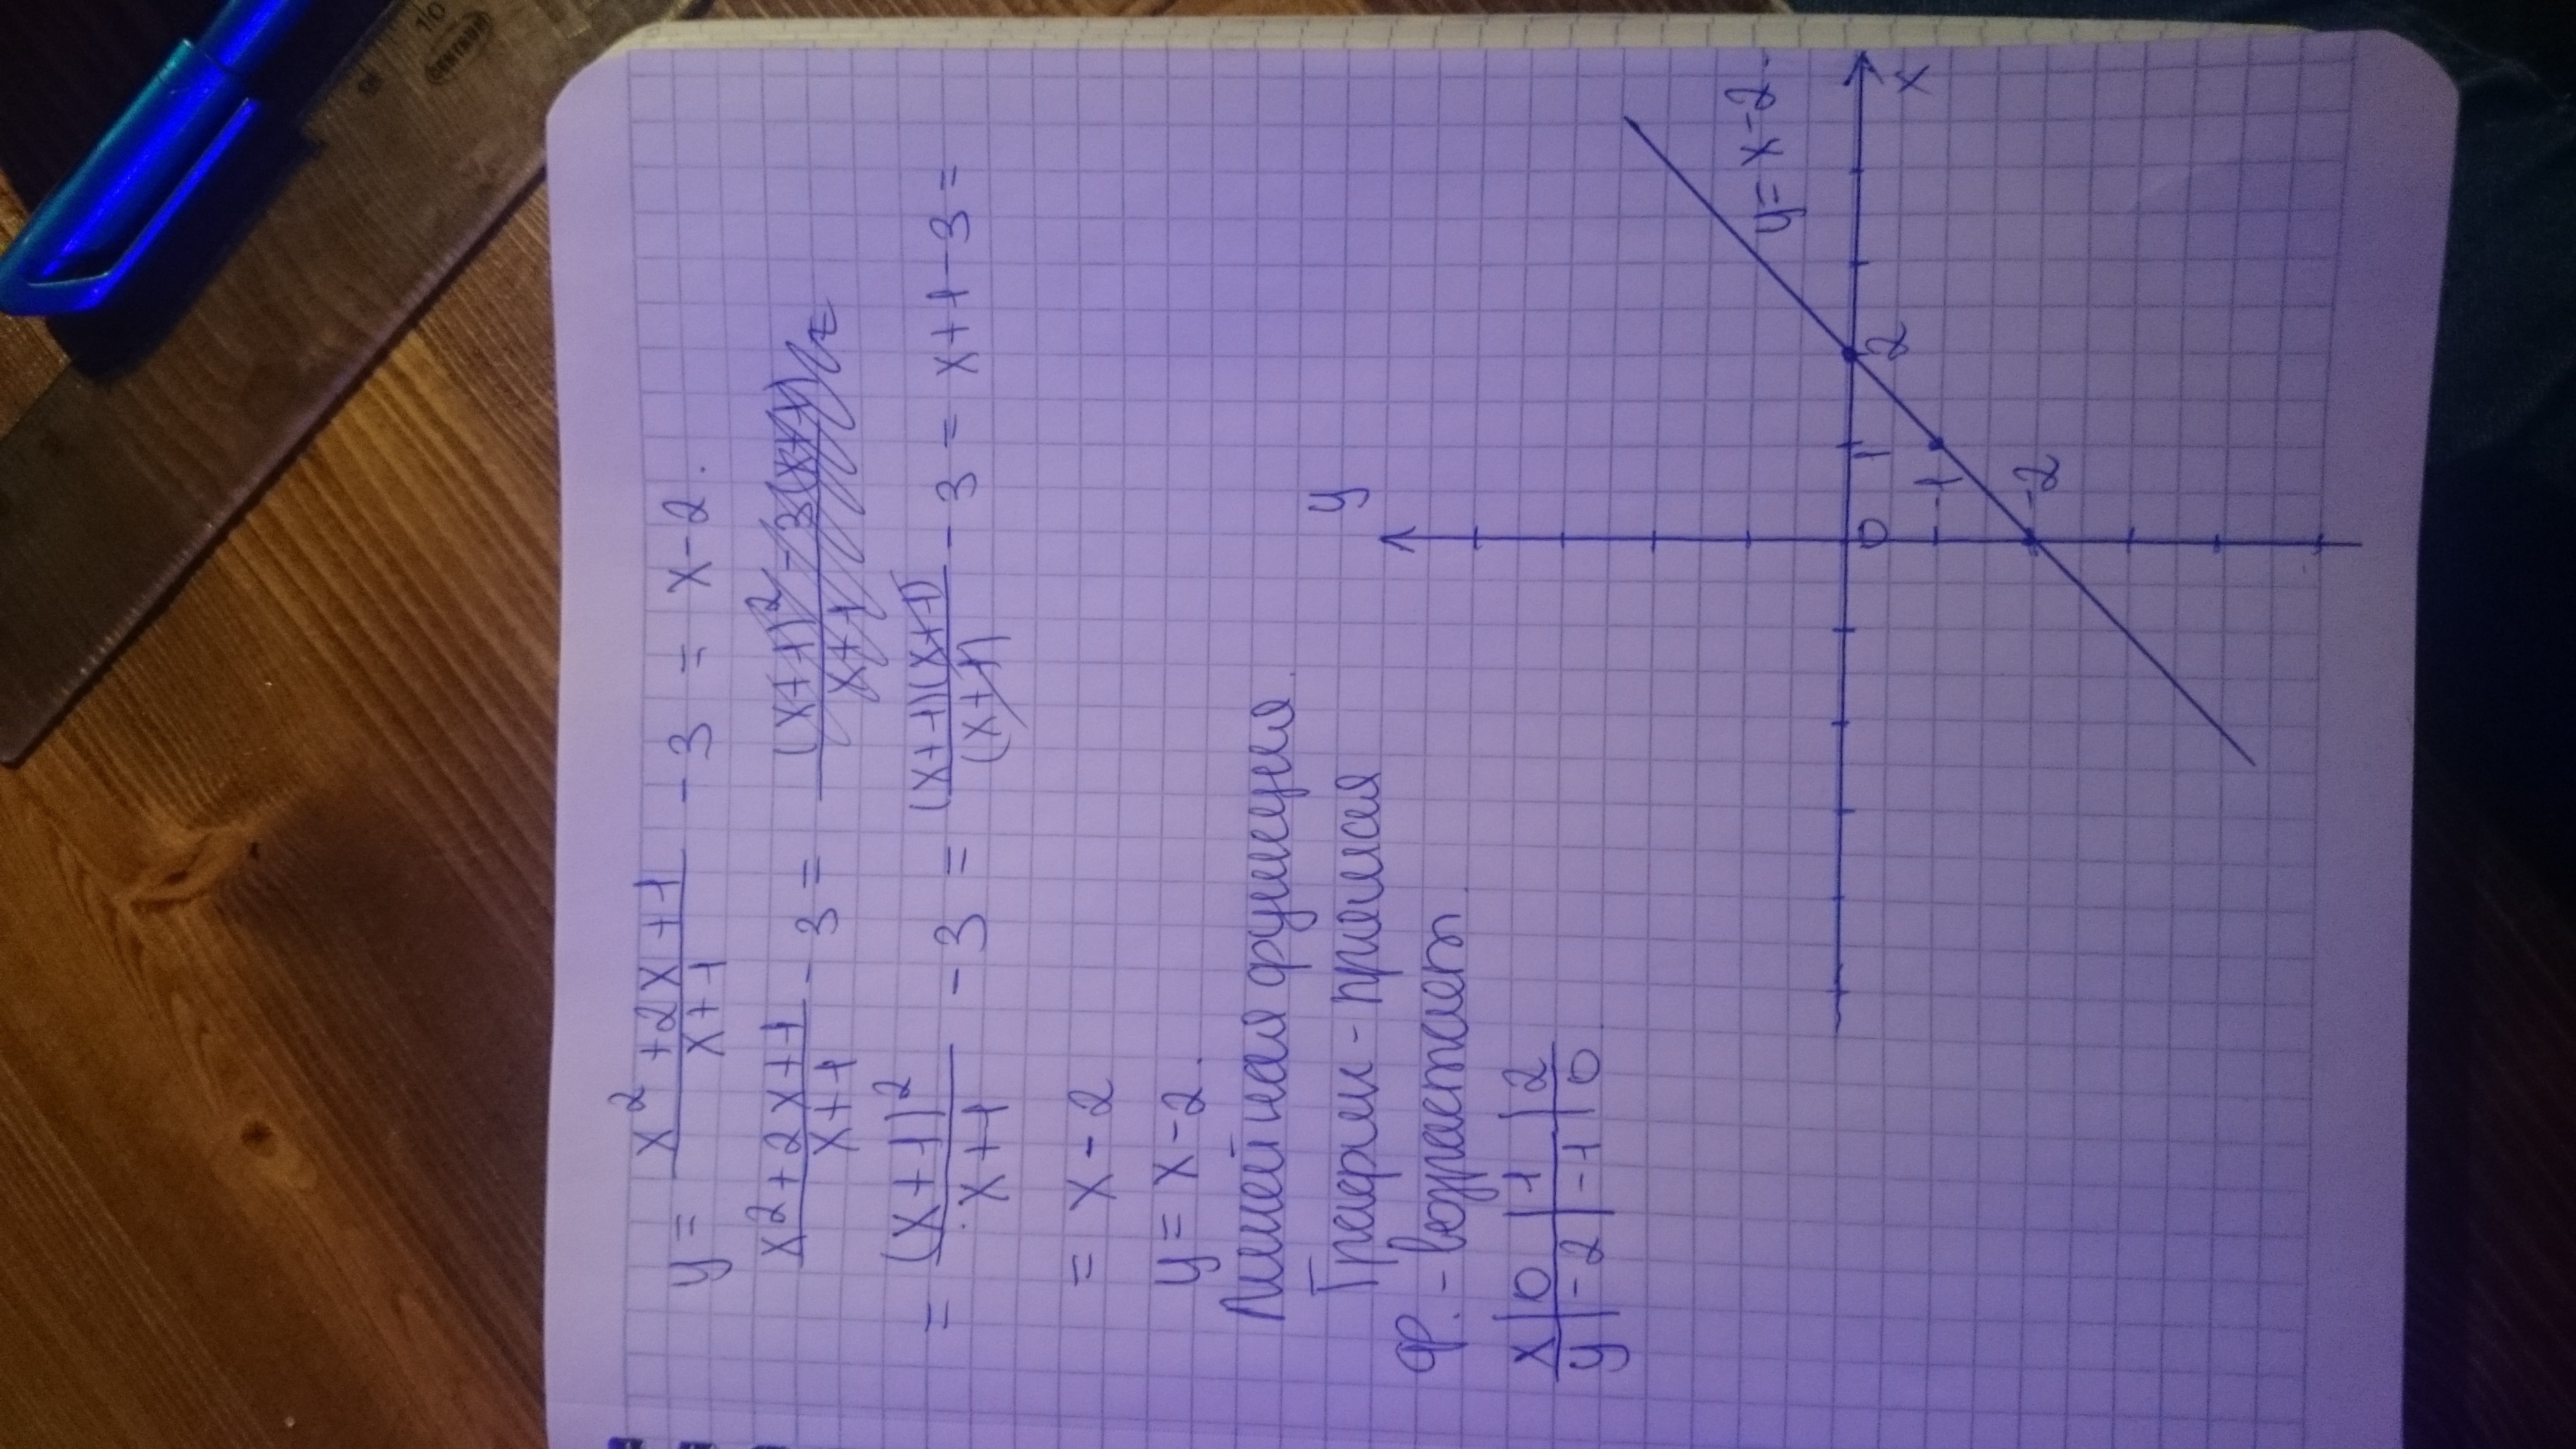 y = x² + 2x + 1 / x + 1 - 3 = x - 2.
x² + 2x + 1 / x + 1 - 3 = (x + 1)² - 3(x + 1) / x + 1 =
= (x + 1)² / x + 1 - 3 = (x + 1)(x + 1) / (x + 1) - 3 = x + 1 - 3 =
= x - 2
y = x - 2.
Линейная функция.
График - прямая
ф. - возрастает.
x | 0 | 1 | 2
y | -2 | -1 | 0
y
y = x - 2.
x
0 1 2
-1
-2
10
CENTRUM
9